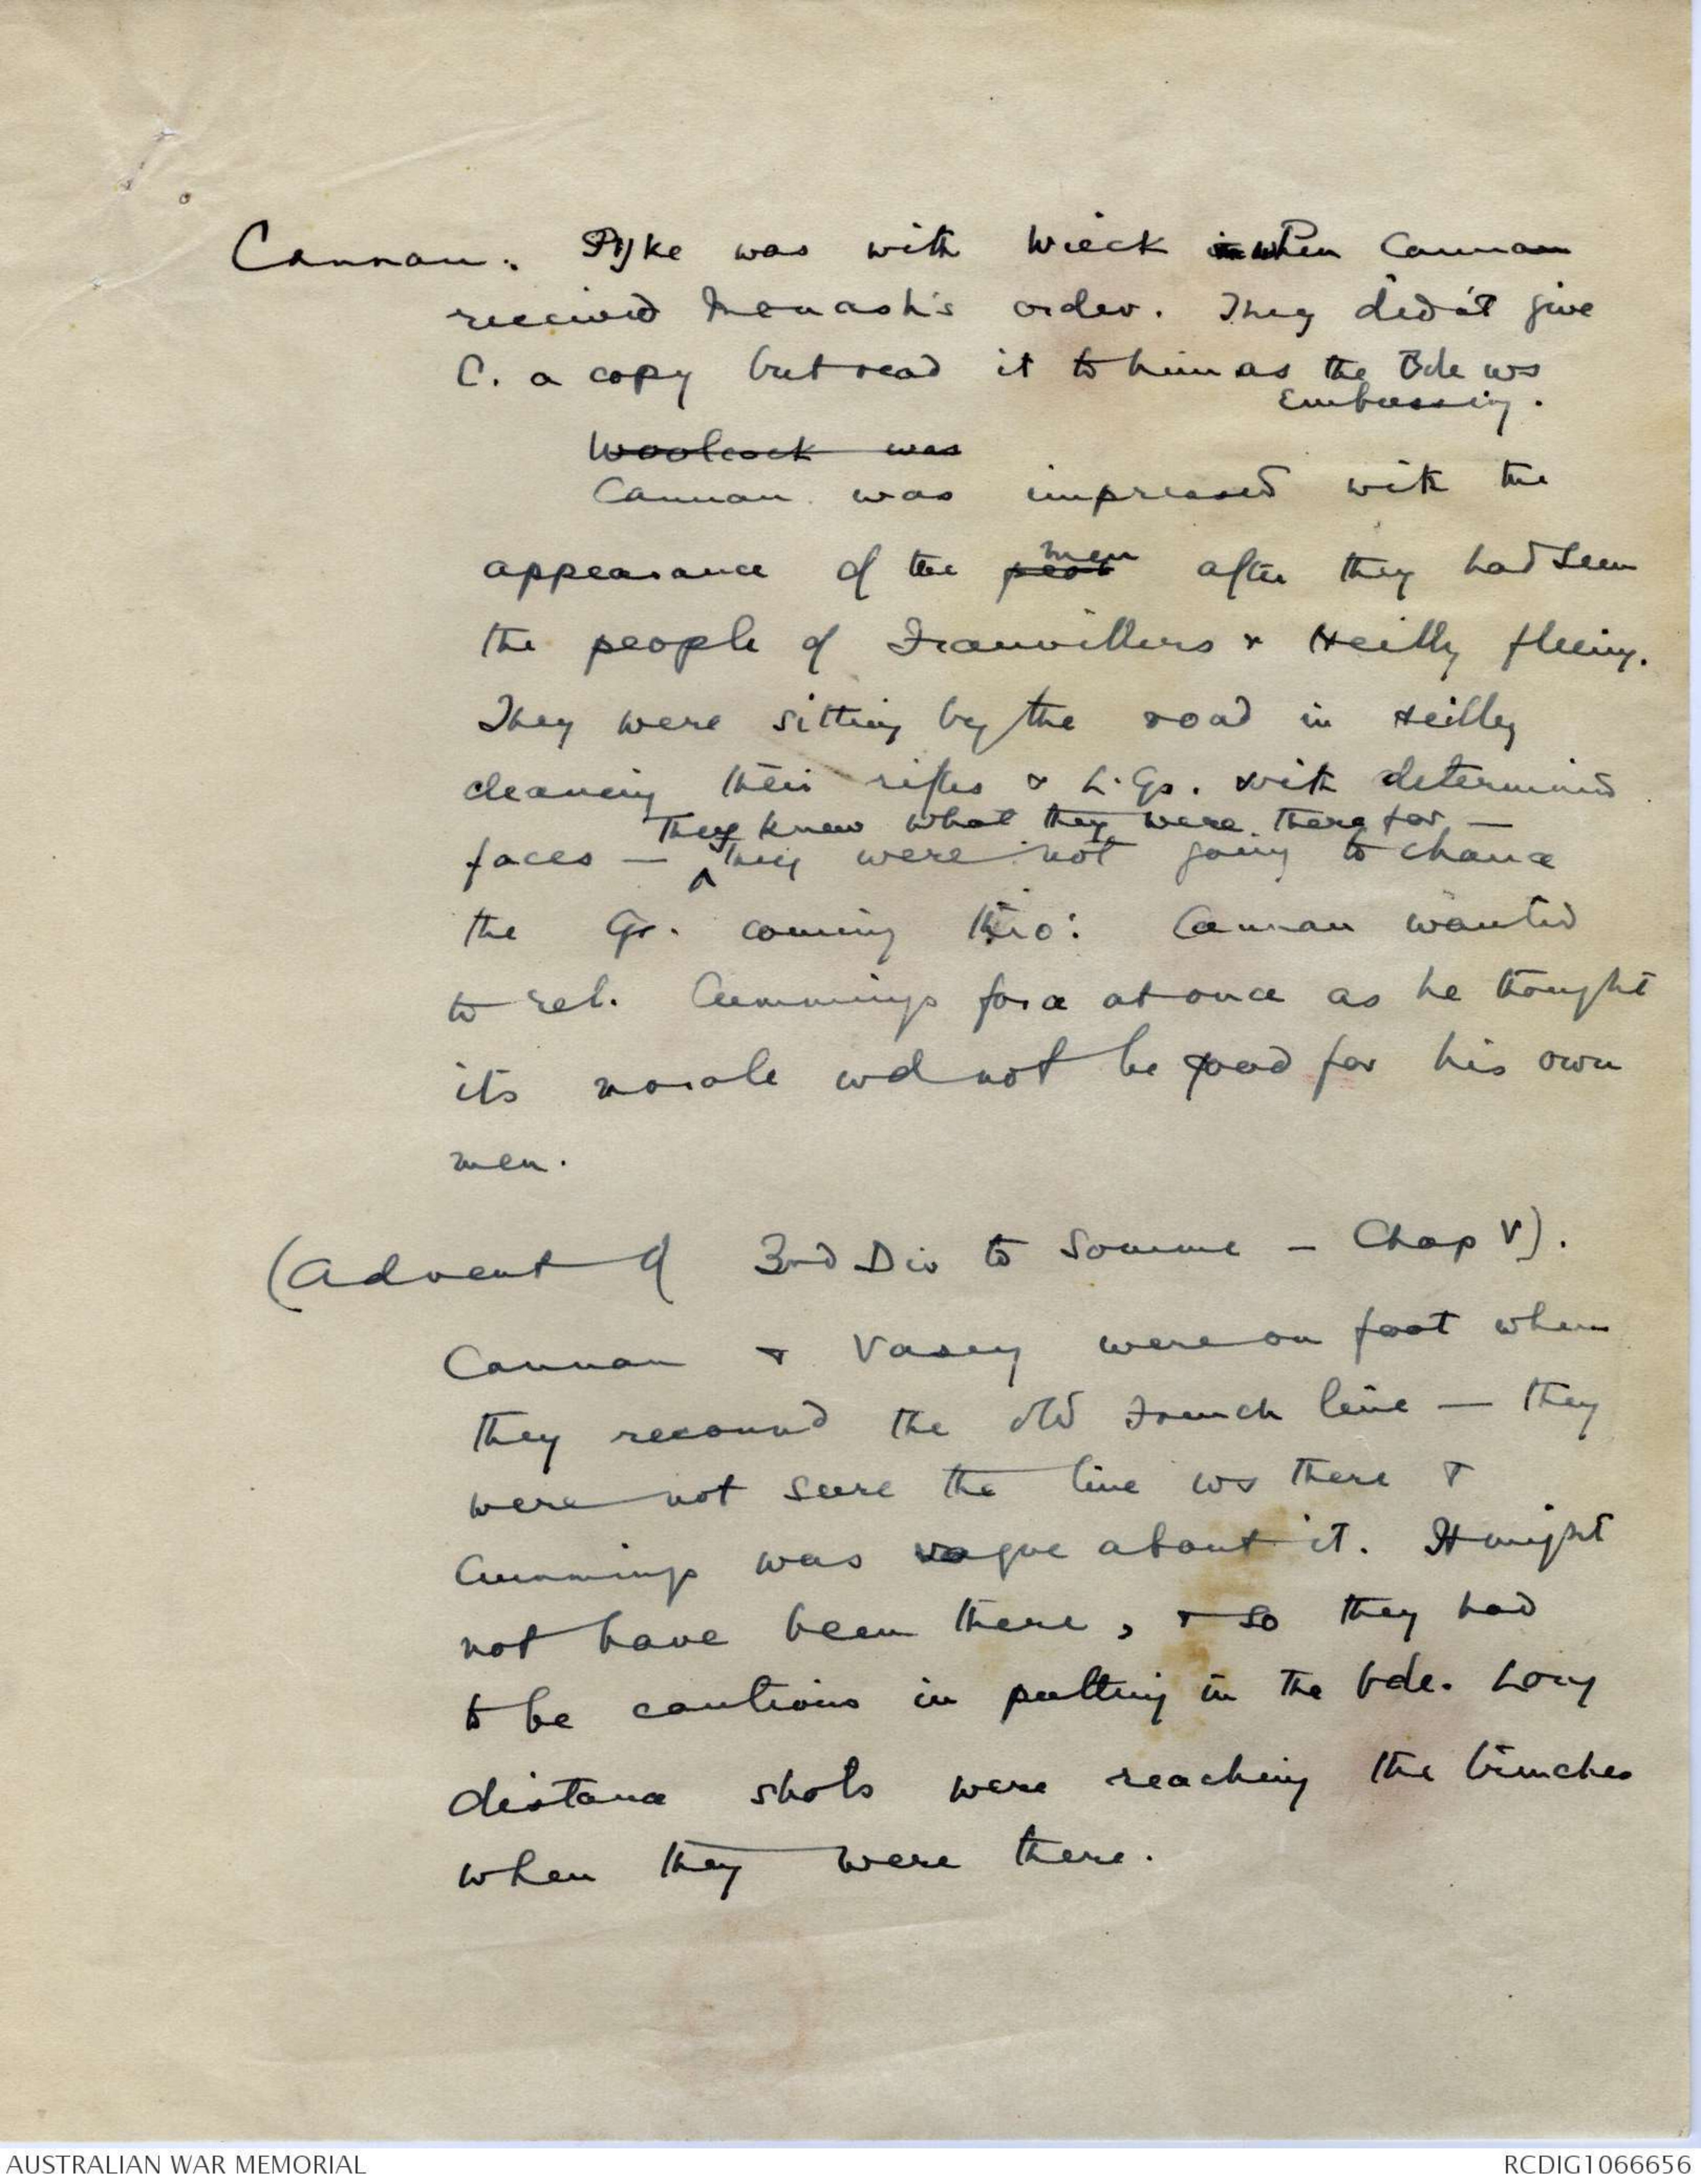 Cannan. Pyke was with Wieck when Cannan
received Monash's order. They did'nt give
C. a copy but read it to him as the Bde ws
Embussing.
Woolcock was
Cannan was impressed with the
men
appearance of the after they had seen
the people of Franvillers & Heilly fleeing.
They were sitting by the road in Heilly
cleaning their rifles & L.Gs. with determined
They knew what they were there for —
faces — ^ they were not going to chance
the Gr. coming thro: Cannan wanted
to rel. Cummings force at once as he thought
its morale wd not be good for his own
men.
(Advent of 3rd Div to Somme - Chap V).
Cannan & Vasey were on foot when
they reconnd the old French line — they
were not sure the line ws there &
Cummings was vague about it. It might
not have been there, & so they had
to be cautious in putting in the bde. Long
distance shots were reaching the trenches
when they were there.
AUSTRALIAN WAR MEMORIAL
RCDIG1066656